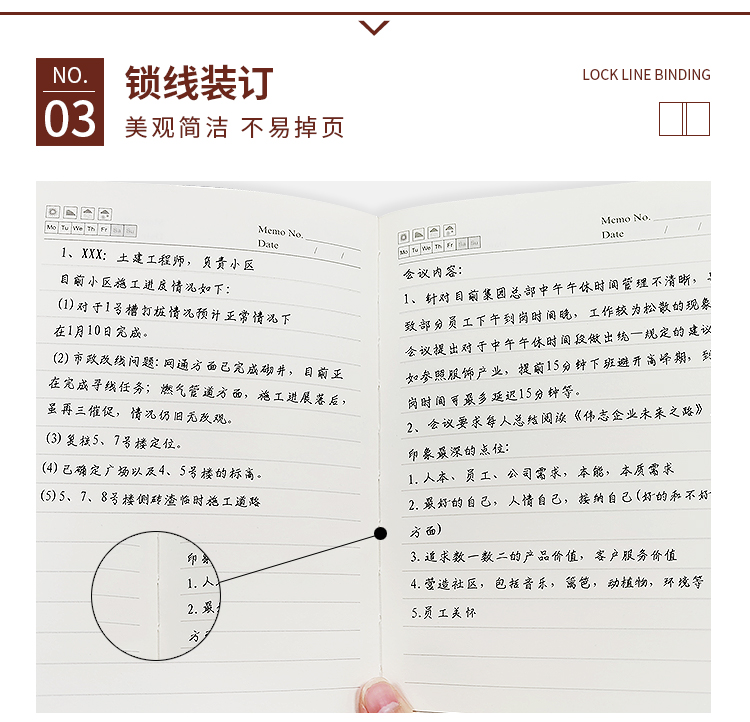 NO.
03
锁线装订
美观简洁 不易掉页
LOCK LINE BINDING
Mo Tu We Th Fr Sa Su
Memo No.
Date / /
1、XXX：土建工程师，负责小区
目前小区施工进度情况如下：
(1)对于1号槽打桩情况预计正常情况下
在1月10日完成。
(2)市政改线问题：网通方面已完成砌井，目前正
在完成导线任务；燃气管道方面，施工进展落后，
虽再三催促，情况仍旧无改观。
(3)复核5、7号楼定位。
(4)已确定广场以及4、5号楼的标高。
(5)5、7、8号楼侧砖渣临时施工道路
Mo Tu We Th Fr Sa Su
Memo No.
Date / /
会议内容：
1、针对目前集团总部中午午休时间管理不清晰，
致部分员工下午到岗时间晚，工作较为松散的现象
会议提出对于中午午休时间段做出统一规定的建议
如参照服饰产业，提前15分钟下班避开高峰期，到
岗时间可最多延迟15分钟等。
2、会议要求每人总结阅读《伟志企业未来之路》
印象最深的点位：
1.人本、员工、公司需求，本能，本质需求
2.最好的自己，人情自己，接纳自己(好的和不好
方面)
3.追求数一数二的产品价值，客户服务价值
4.营造社区，包括音乐，篱笆，动植物，环境等
5.员工关怀
印象
1.人
2.最
方